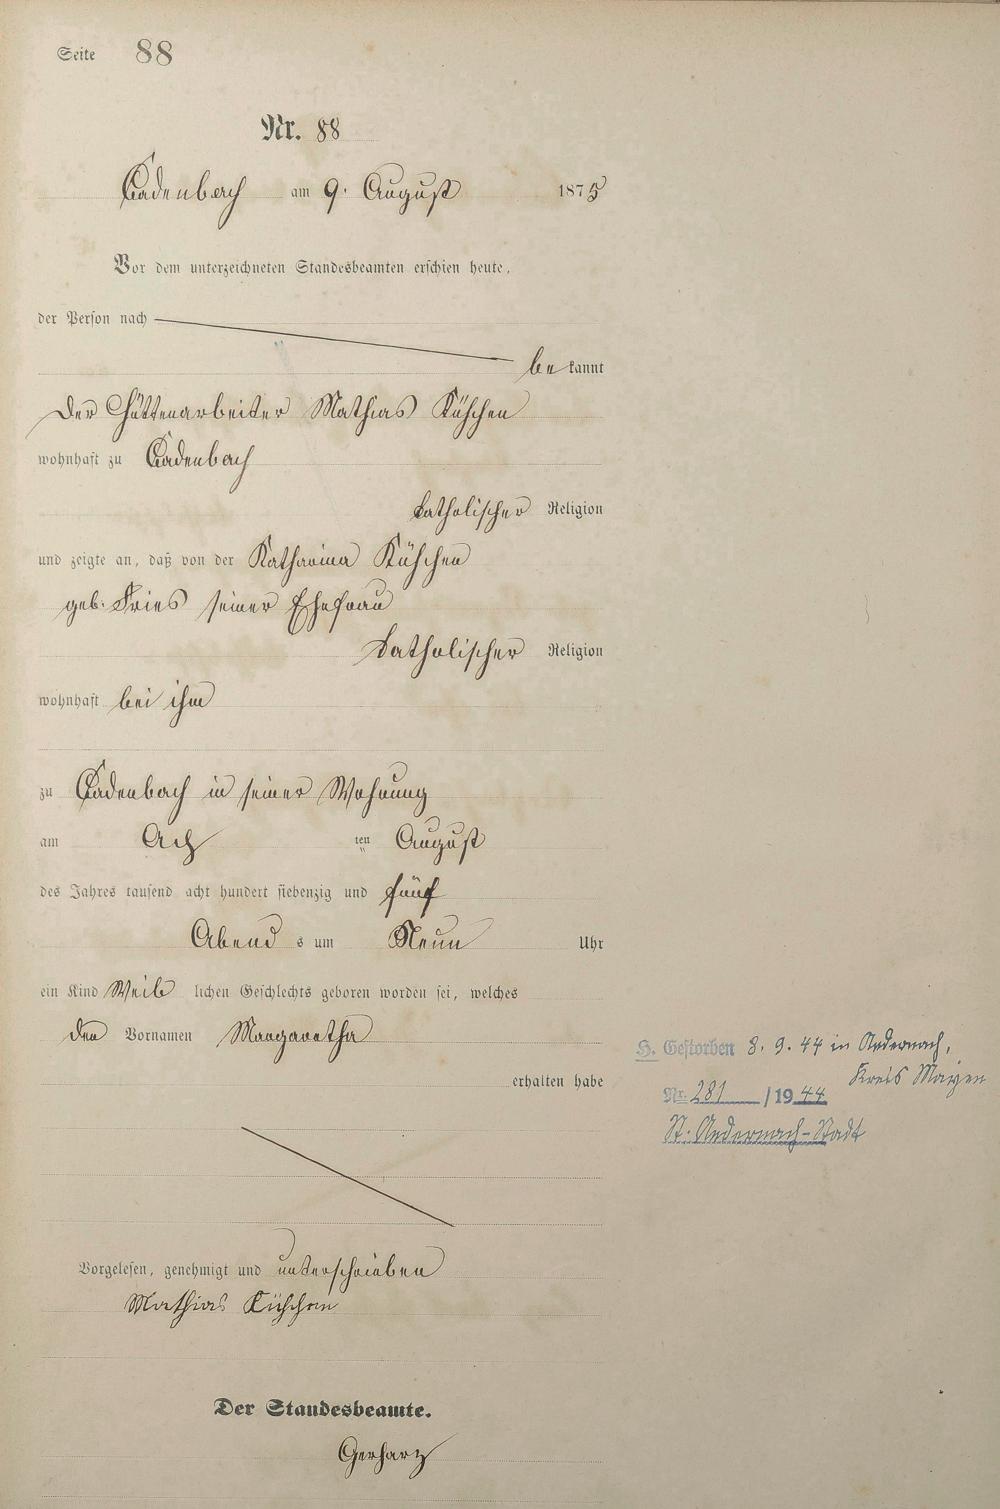 Seite 88
Nr. 88
Cadenbach am 9. August 1875
Vor dem unterzeichneten Standesbeamten erschien heute,
der Person nach
bekannt
der Hüttenarbeiter Mathias Küschen
wohnhaft zu Cadenbach
katholischer Religion
und zeigte an, daß von der Katharina Küschen
geb. Fries seiner Ehefrau
katholischer Religion
wohnhaft bei ihm
zu Cadenbach in seiner Wohnung
am Acht ten August
des Jahres tausend acht hundert siebenzig und fünf
Abend s um Neun Uhr
ein Kind Weib lichen Geschlechts geboren worden sei, welches
den Vornamen Margaretha
erhalten habe
H. Gestorben 8. 9. 44 in Andernach,
Kreis Mayen
Nr. 281 /1944
St. Andernach-Stadt
Vorgelesen, genehmigt und unterschrieben
Mathias Küschen
Der Standesbeamte.
Gerharz